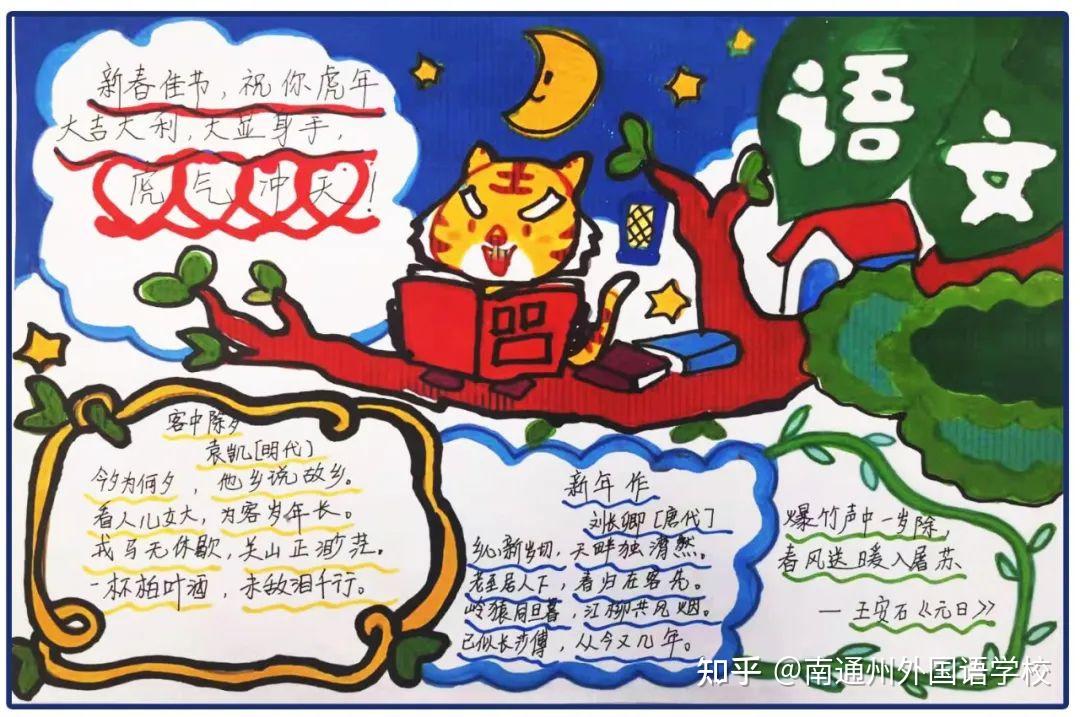 语文
新春佳节，祝你虎年
大吉大利，大显身手，
虎气冲天！
客中除夕
袁凯[明代]
今夕为何夕，他乡说故乡。
看人儿女大，为客岁年长。
戎马无休歇，关山正渺茫。
一杯柏叶酒，未敌泪千行。
新年作
刘长卿[唐代]
乡心新岁切，天畔独潸然。
老至居人下，春归在客先。
岭猿同旦暮，江柳共风烟。
已似长沙傅，从今又几年。
爆竹声中一岁除，
春风送暖入屠苏
— 王安石《元日》
知乎 @南通州外国语学校